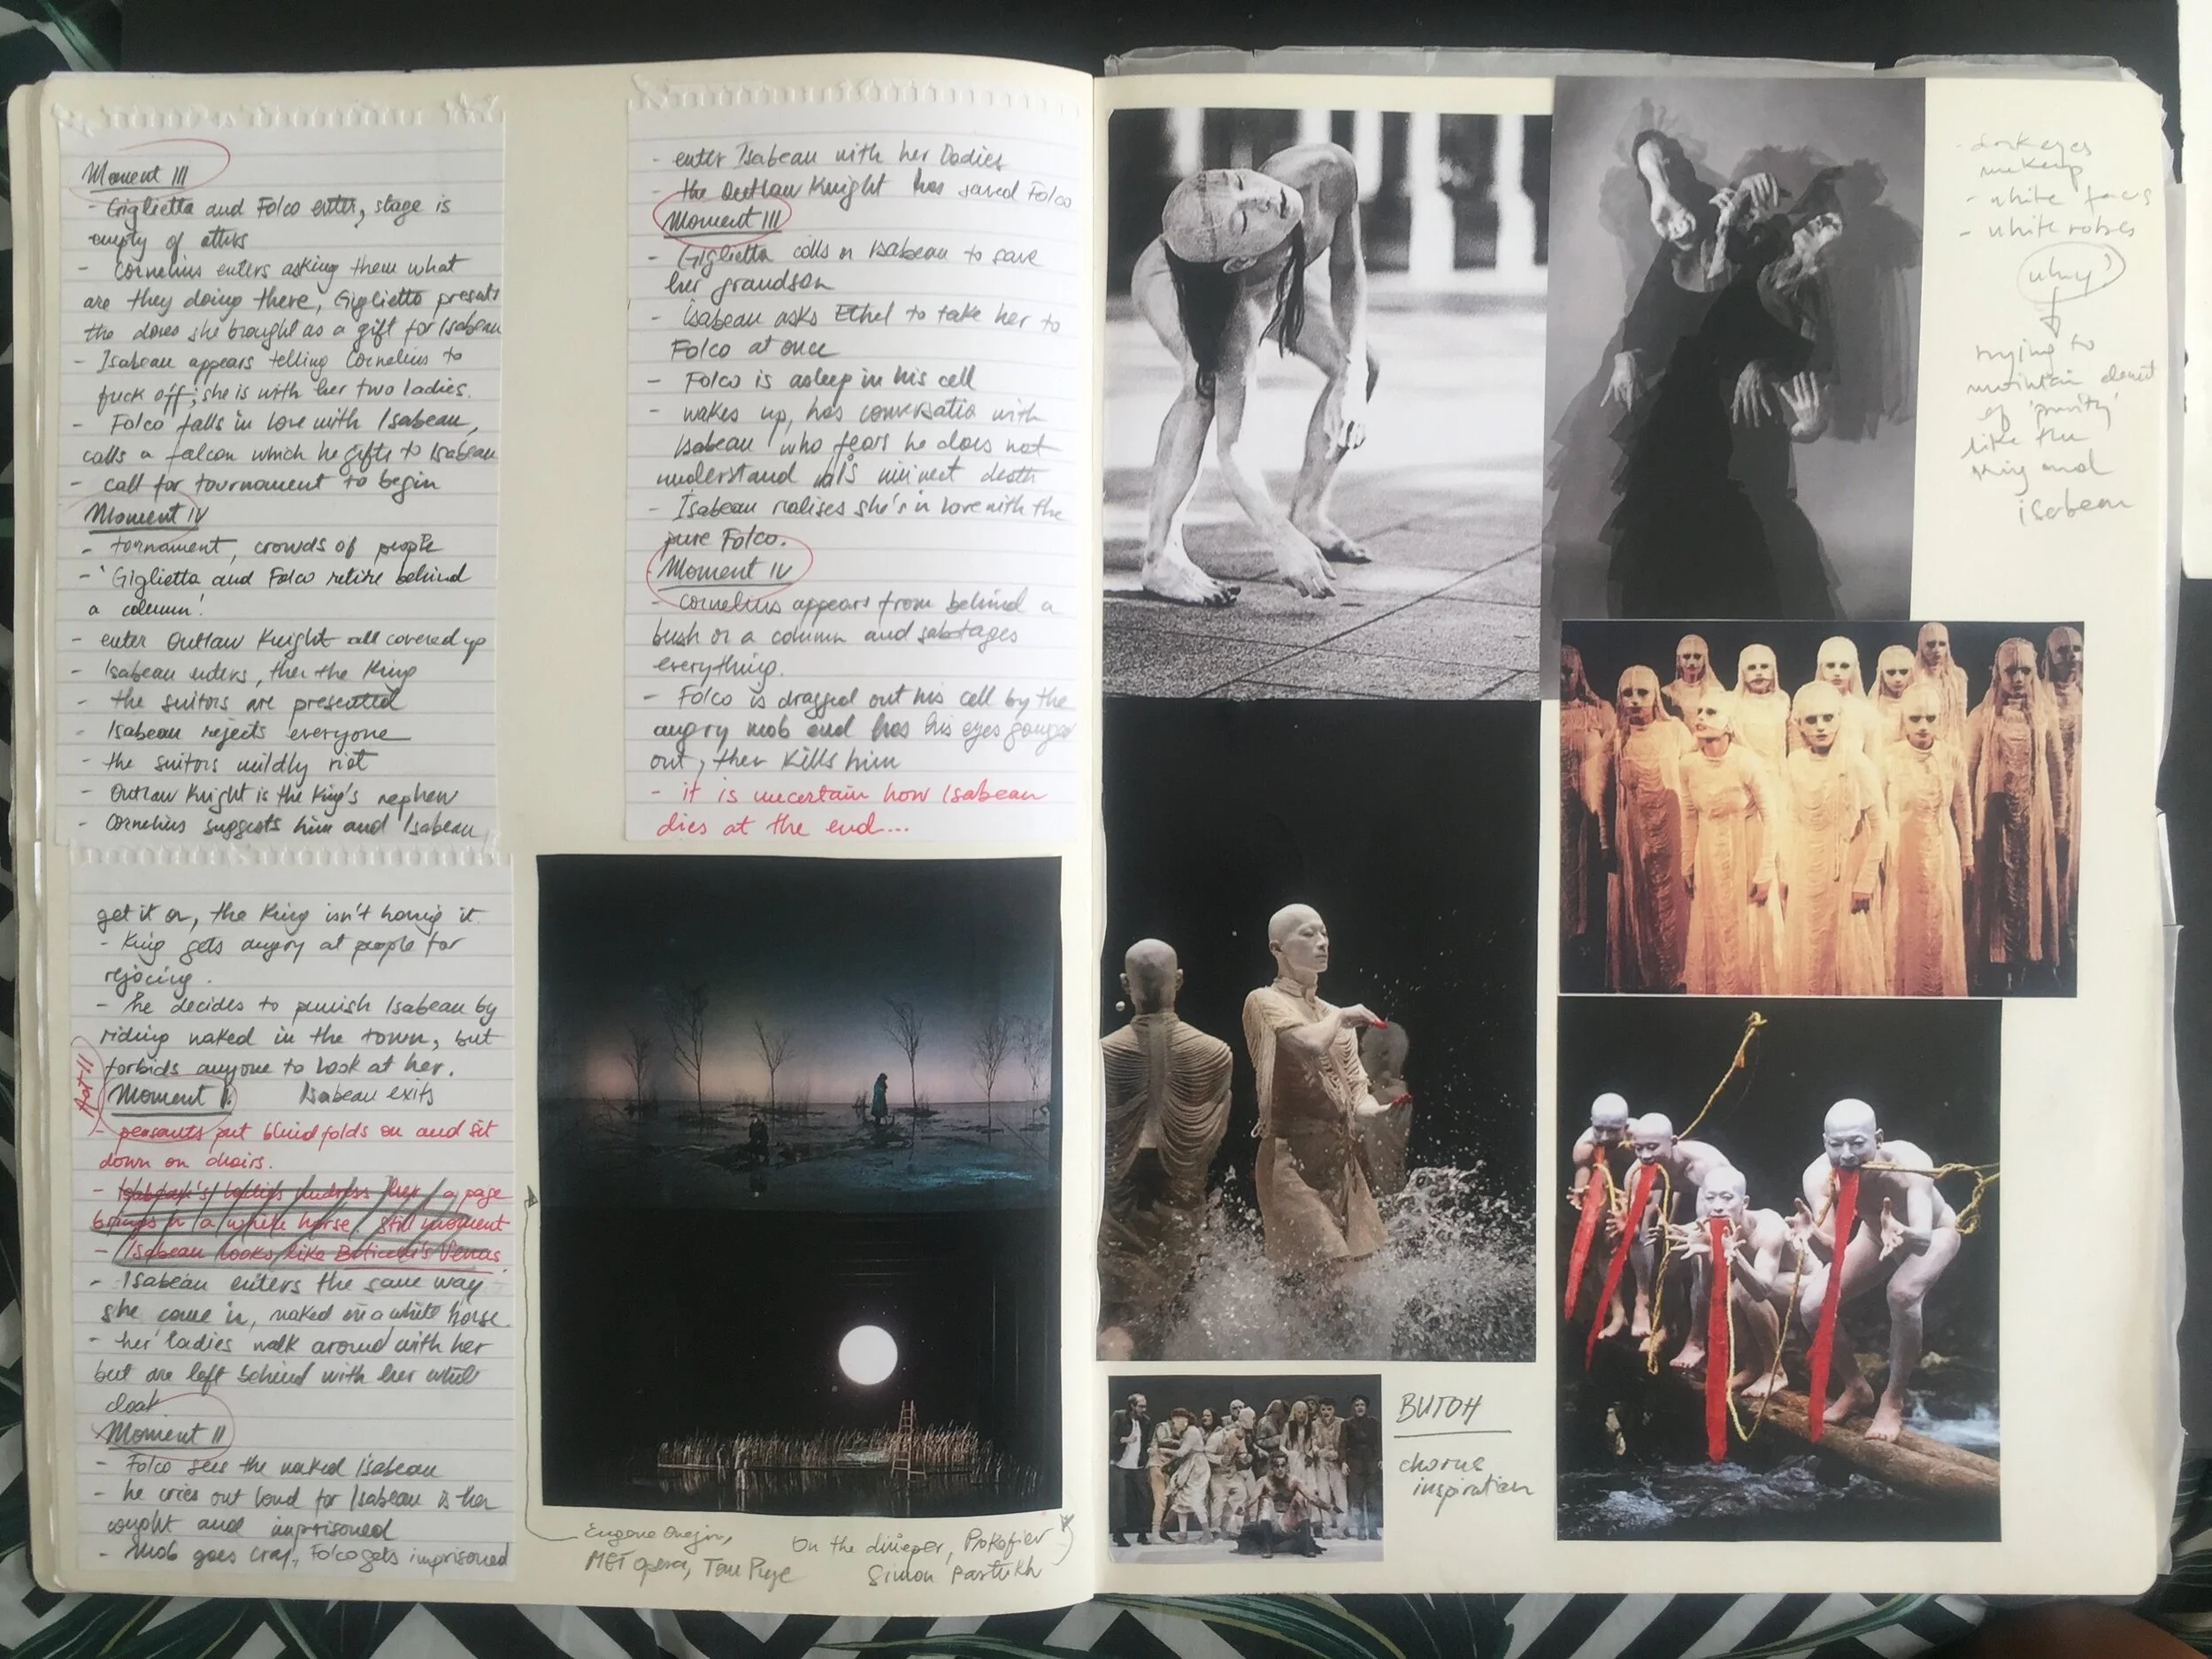 Moment III
- Giglietta and Folco enter, stage is
empty of others
- Cornelius enters asking them what
are they doing there, Giglietta presents
the doves she brought as a gift for Isabeau
- Isabeau appears telling Cornelius to
fuck off; she is with her two ladies.
- Folco falls in love with Isabeau,
calls a falcon which he gifts to Isabeau
- call for tournament to begin
Moment IV
- tornament, crowds of people
- 'Giglietta and Folco retire behind
a column!
- enter Outlaw Knight all covered up
- Isabeau enters, then the King
- the suitors are presented
- Isabeau rejects everyone
- the suitors mildly riot
- Outlaw Knight is the King's nephew
- Cornelius suggests him and Isabeau
get it on, the King isn't having it.
- King gets angry at people for
rejocing.
- he decides to punish Isabeau by
riding naked in the town, but
forbids anyone to look at her.
Act II
Moment I. Isabeau exits
- peasants put blindfolds on and sit
down on chairs.
- Isabeau's ladies undress her, a page
brings in a white horse, still moment
- Isabeau looks like Boticelli's Venus.
- Isabeau enters the same way
she came in, naked on a white horse.
- her ladies walk around with her
but are left behind with her white
cloak
Moment II
- Folco sees the naked Isabeau
- he cries out loud for Isabeau is then
cought and imprisoned
- Mob goes cray, Folco gets imprisoned
- enter Isabeau with her Ladies
- the Outlaw Knight has saved Folco
Moment III
- Giglietta calls on Isabeau to save
her grandson
- Isabeau asks Ethel to take her to
Folco at once
- Folco is asleep in his cell
- wakes up, has conversatio with
Isabeau who fears he does not
understand his iminent death
- Isabeau realises she's in love with the
pure Folco.
Moment IV
- Cornelius appears from behind a
bush or a column and sabotages
everything.
- Folco is dragged out his cell by the
angry mob and has his eyes gouged
out, then kills him
- it is uncertain how Isabeau
dies at the end...
Eugene Onegin,
MET opera, Tom Pye
On the dnieper, Prokofiev
Simon Pastukh
- dark eyes
makeup
- white faces
- white robes
why?
trying to
maintain element
of 'purity'
like the
king and
isabeau
BUTOH
chorus
inspiration